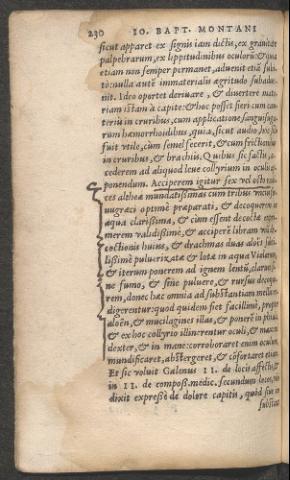 230 IO. BAPT. MONTANI
sicut apparet ex signis iam dictis, ex grauitate
palpebrarum, ex lippitudinibus oculorū: & quia
etiam non semper permanet, aduenit etiā subi-
tò: nulla autē immaterialis ægritudo subadue-
nit. Ideo oportet deriuare, & diuertere mate-
riam istam à capite: & hoc posset fieri cum cau-
terijs in cruribus, cum applicatione sanguisuga-
rum hæmorrhoidibus, quia, sicut audio,
fuit vtile, cùm semel fecerit, & cum frictionibus
in cruribus, & brachijs. Quibus sic factis,
cederem ad aliquod leue collyrium in oculis
ponendum. Acciperem igitur sex vel octo
ces altheæ mundatissimas cum tribus
nugræci optimè præparati, & decoquerem in
aqua clarissima, & cùm essent decocta
merem validissimè, & acciperē libram vnam de-
coctionis huius, & drachmas duas aloës
lissimè puluerizatæ & lotæ in aqua
& iterum ponerem ad ignem lentū, clarum
ne fumo, & sine puluere, & rursus decoque-
rem, donec hæc omnia ad substantiam mellis
digerentur: quod quidem fiet facillimè, propter
aloën, & mucilagines illas, & ponerē in
& ex hoc collyrio illinirentur oculi, &
dexter, & in mane: corroboraret enim oculum,
mundificaret, abstergeret, & cōfortaret etiam.
Et sic voluit Galenus 11. de locis affectis, &
in 11. de compos. medic. secundum locos,
dixit expressè de dolore capitis, quòd sine
substan